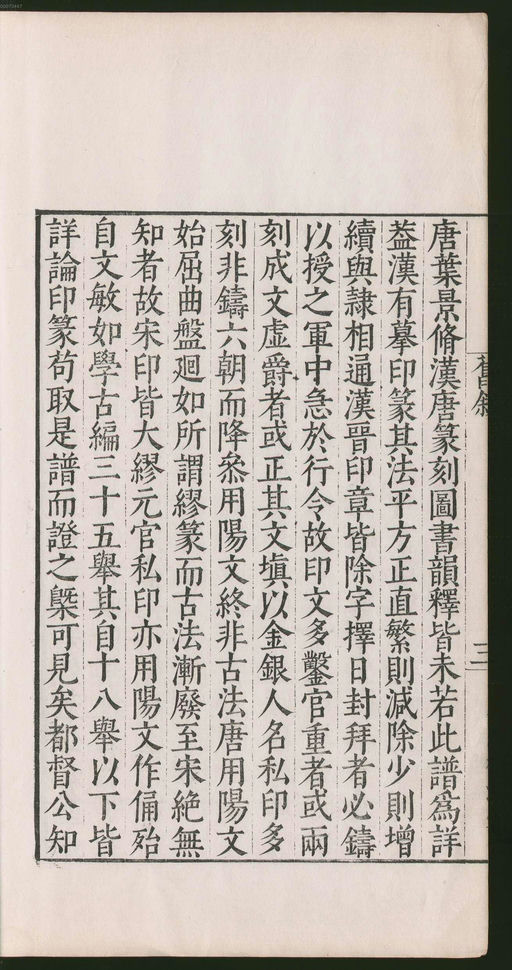 唐葉景脩漢唐篆刻圖書韻釋皆未若此譜爲詳
葢漢有摹印篆其法平方正直繁則減除少則增
續與隸相通漢晉印章皆除字擇日封拜者必鑄
以授之軍中急於行令故印文多鑿官重者或兩
刻成文虛爵者或正其文塡以金銀人名私印多
刻非鑄六朝而降叅用陽文終非古法唐用陽文
始屈曲盤廻如所謂繆篆而古法漸廢至宋絶無
知者故宋印皆大繆元官私印亦用陽文作俑殆
自文敏如學古編三十五舉其自十八舉以下皆
詳論印篆苟取是譜而證之槩可見矣都督公知
三
00073447